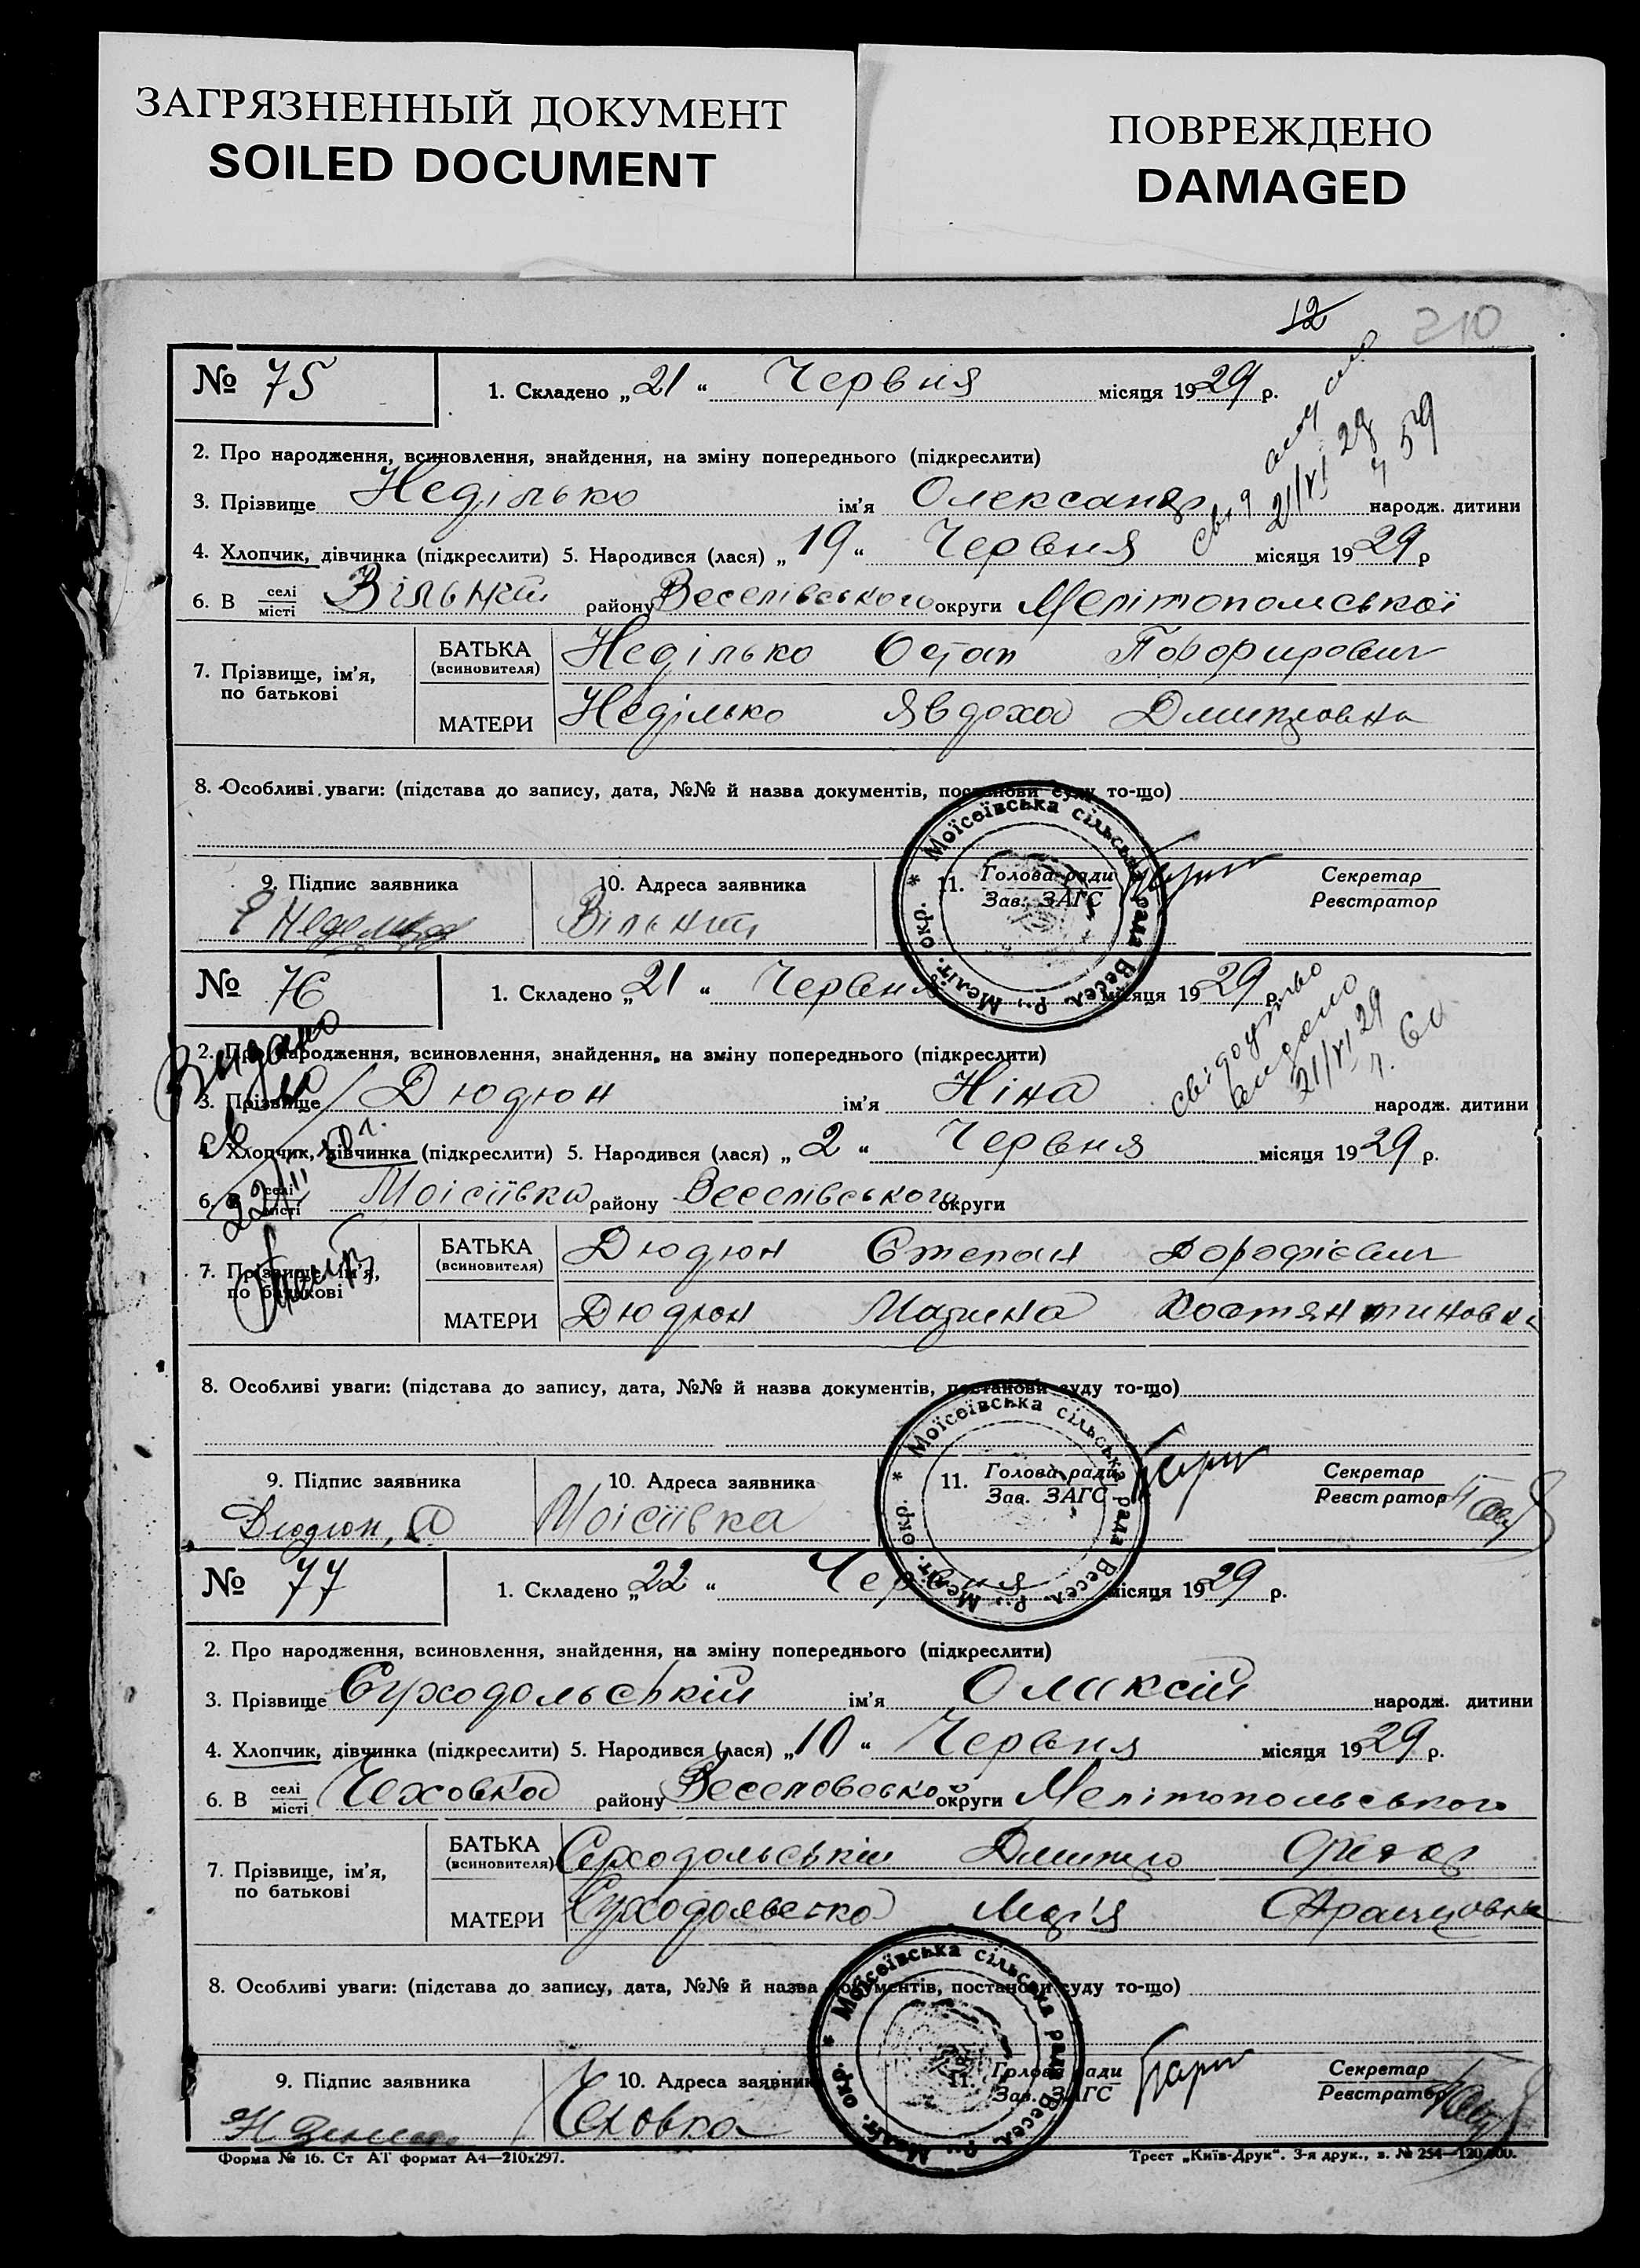 ЗАГРЯЗНЕННЫЙ ДОКУМЕНТ
SOILED DOCUMENT
ПОВРЕЖДЕНО
DAMAGED
12
210
№ 75
1. Складено „21“ Червня місяця 1929 р.
2. Про народження, всиновлення, знайдення, на зміну попереднього (підкреслити)
21/VI 29
ч 59
3. Прізвище Неділько ім'я Олександр народж. дитини
4. Хлопчик, дівчинка (підкреслити) 5. Народився (лася) „19“ Червня місяця 1929 р
6. В селі/місті Вільний району Веселівського округи Мелітопольської
7. Прізвище, ім'я, по батькові
БАТЬКА (всиновителя) Неділько Остап
МАТЕРИ Неділько Явдоха Дмитровна
8. Особливі уваги: (підстава до запису, дата, №№ й назва документів, постанови суду то-що)
9. Підпис заявника
10. Адреса заявника Вільний
11. Голова ради
Зав. ЗАГС
Секретар
Реєстратор
* Моїсеївська сільська рада Весел. р., Меліт. окр.
№ 76
1. Складено „21“ Червня місяця 1929 р.
Видано
2. Про народження, всиновлення, знайдення, на зміну попереднього (підкреслити)
свідоцтво
видано
21/VI 29
ч. 60
3. Прізвище Дюдюн ім'я Ніна народж. дитини
4. Хлопчик, дівчинка (підкреслити) 5. Народився (лася) „2“ Червня місяця 1929 р.
6. В селі/місті Моісіївка району Веселівського округи
7. Прізвище, ім'я, по батькові
БАТЬКА (всиновителя) Дюдюн Степан Дорофієвич
МАТЕРИ Дюдюн Марина Костянтиновна
8. Особливі уваги: (підстава до запису, дата, №№ й назва документів, постанови суду то-що)
9. Підпис заявника Дюдюн,
10. Адреса заявника Моісіївка
11. Голова ради
Зав. ЗАГС
Секретар
Реєстратор
* Моїсеївська сільська рада Весел. р., Меліт. окр.
№ 77
1. Складено „22“ Червня місяця 1929 р.
2. Про народження, всиновлення, знайдення, на зміну попереднього (підкреслити)
3. Прізвище Суходольський ім'я Оликсій народж. дитини
4. Хлопчик, дівчинка (підкреслити) 5. Народився (лася) „10“ Червня місяця 1929 р.
6. В селі/місті Чеховка району Веселовської округи Мелітопольського
7. Прізвище, ім'я, по батькові
БАТЬКА (всиновителя) Суходольський Дмитро
МАТЕРИ Суходольська Марія
8. Особливі уваги: (підстава до запису, дата, №№ й назва документів, постанови суду то-що)
9. Підпис заявника
10. Адреса заявника Чеховка
11. Голова ради
Зав. ЗАГС
Секретар
Реєстратор
* Моїсеївська сільська рада Весел. р., Меліт. окр.
Форма № 16. Ст АТ формат А4—210х297.
Трест „Київ-Друк“. 3-я друк., з. № 254—120.000.